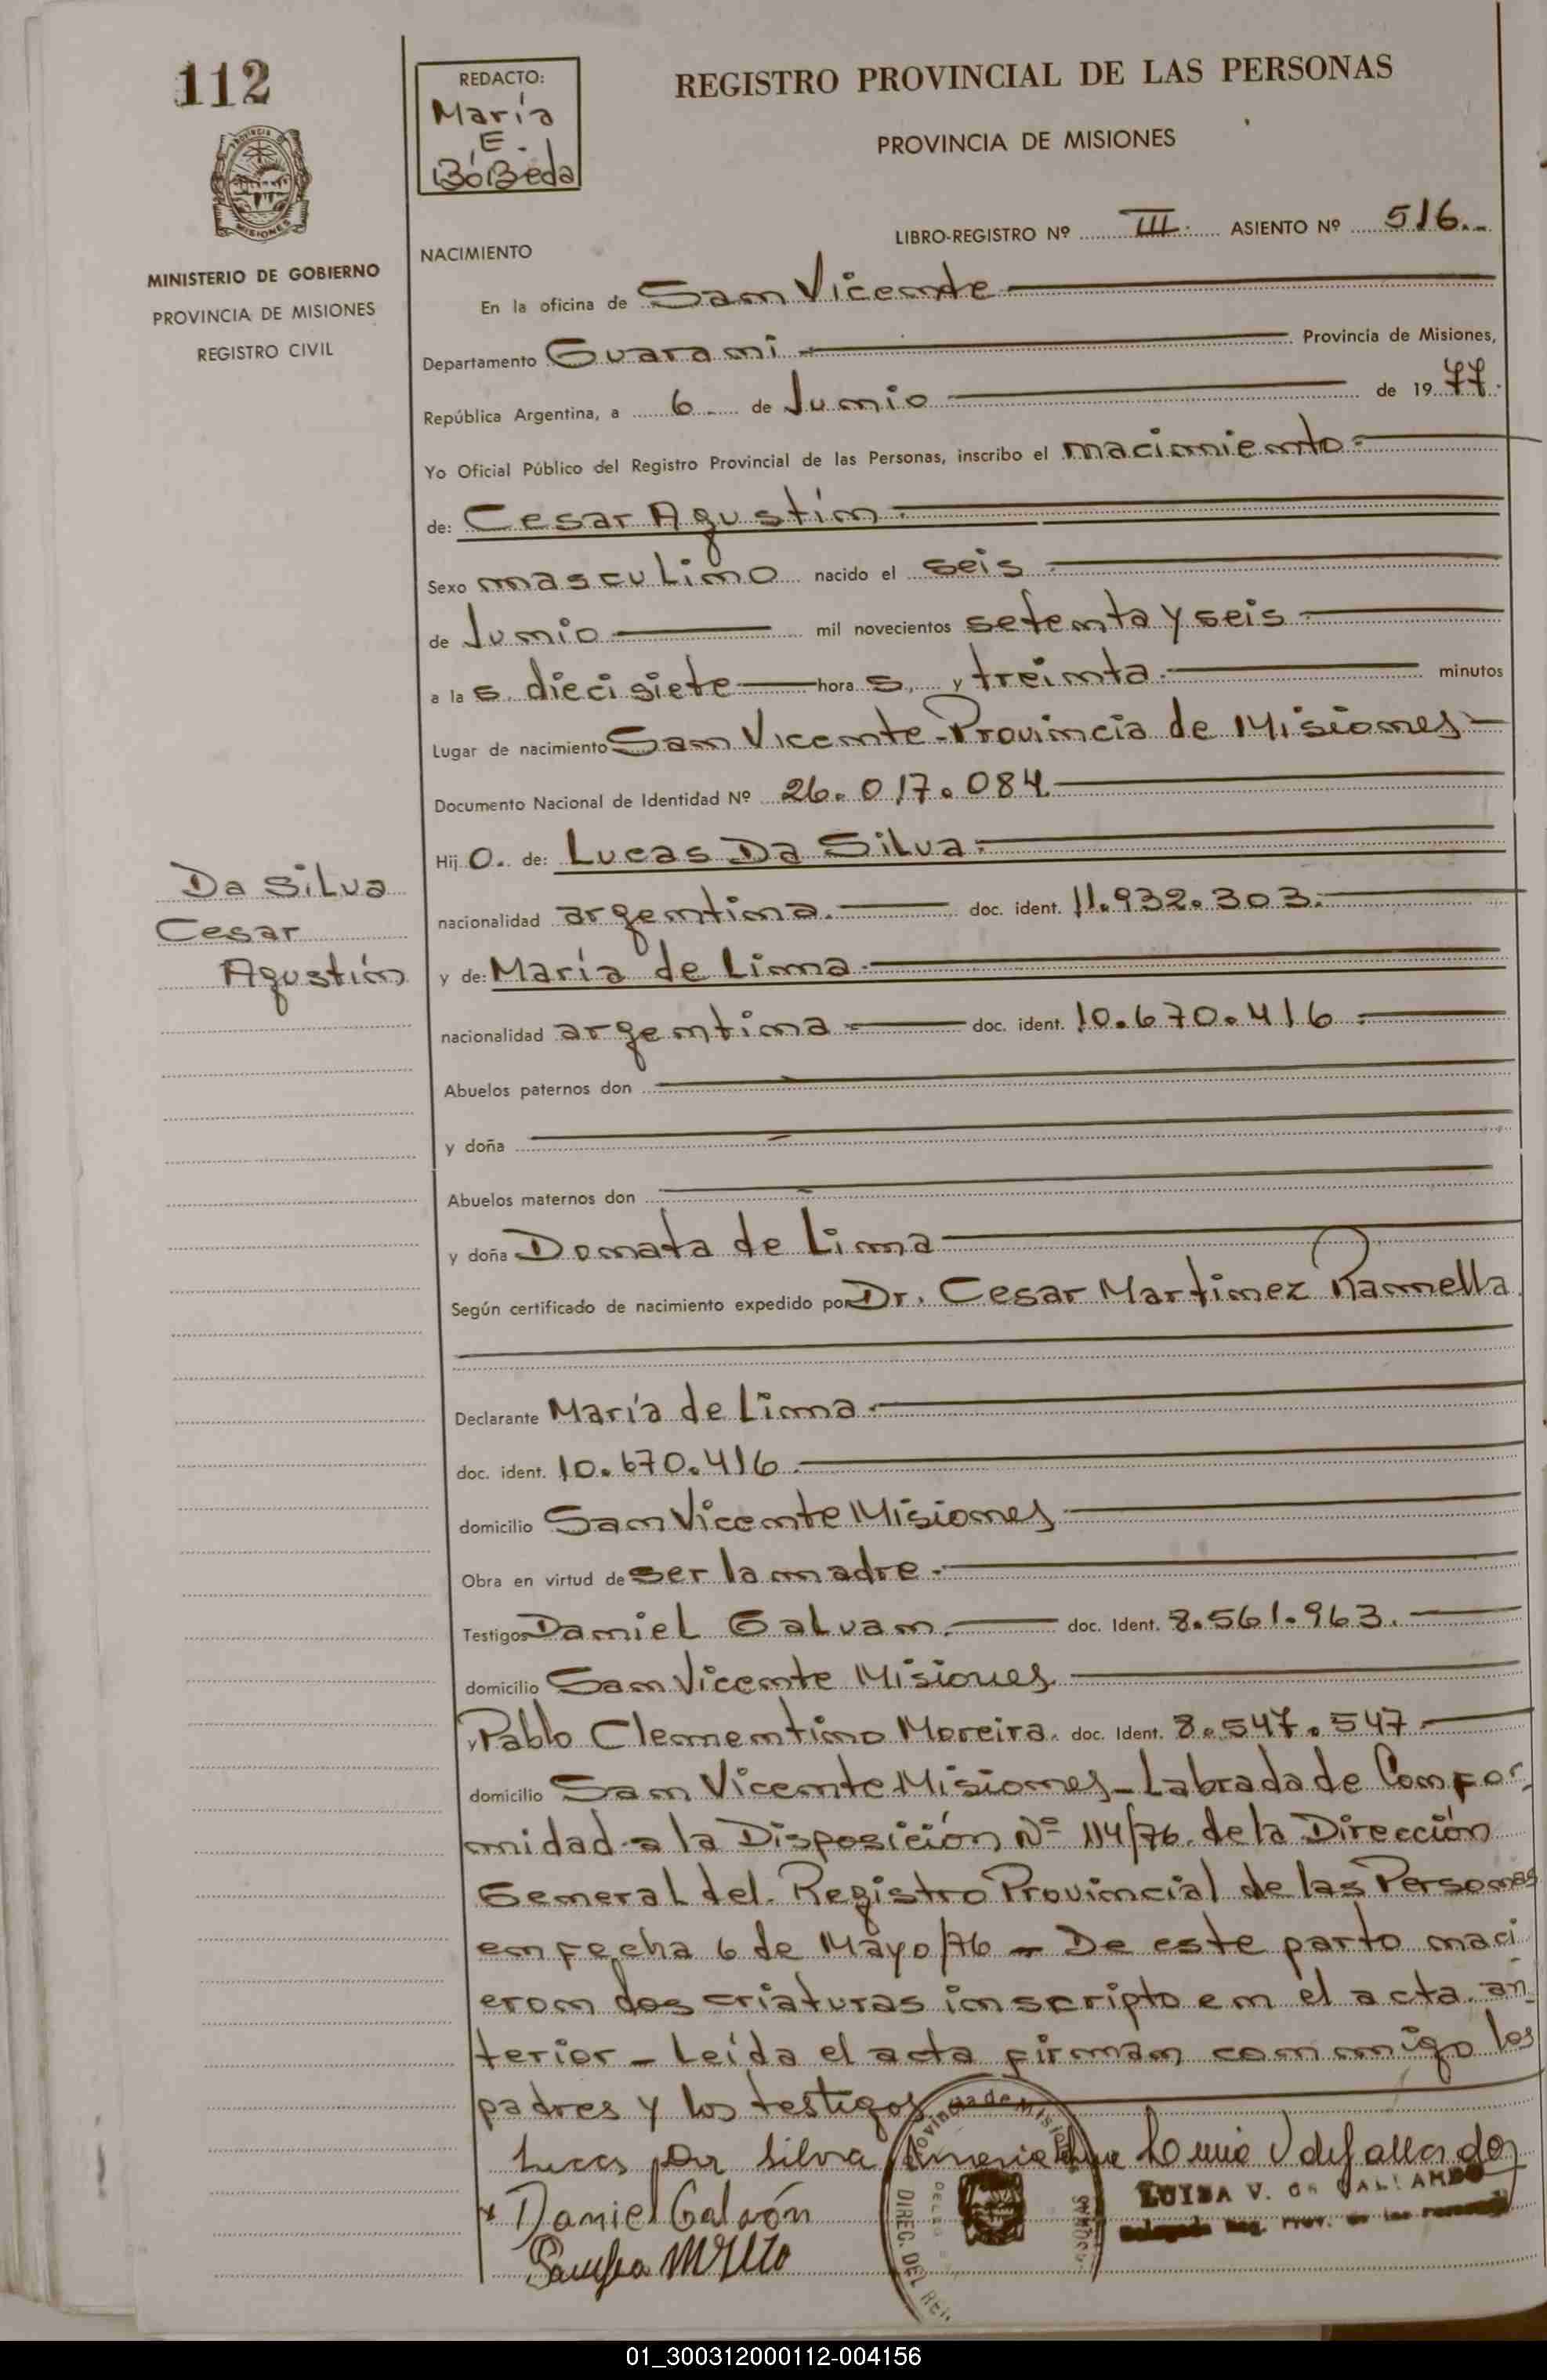 112
REDACTO:
María
E.
BóBeda
REGISTRO PROVINCIAL DE LAS PERSONAS
PROVINCIA DE MISIONES
MISIONES
MINISTERIO DE GOBIERNO
PROVINCIA DE MISIONES
REGISTRO CIVIL
LIBRO-REGISTRO Nº III. ASIENTO Nº 516.-
NACIMIENTO
En la oficina de San Vicente
Departamento Guarani Provincia de Misiones,
República Argentina, a 6 de Junio de 1977.
Yo Oficial Público del Registro Provincial de las Personas, inscribo el nacimiento
de: Cesar Agustin
Sexo masculino nacido el seis
de Junio mil novecientos setenta y seis
a la s. diecisiete hora s, y treinta. minutos
Lugar de nacimiento San Vicente-Provincia de Misiones
Documento Nacional de Identidad Nº 26.017.084
Hij o. de: Lucas Da Silva.
Da Silva
nacionalidad argentina. doc. ident. 11.932.303.
Cesar
y de: María de Lima.
Agustín
nacionalidad argentina doc. ident. 10.670.416
Abuelos paternos don
y doña
Abuelos maternos don
y doña Donata de Lima
Según certificado de nacimiento expedido por Dr. Cesar Martinez Ramella
Declarante María de Lima.
doc. ident. 10.670.416
domicilio San Vicente Misiones
Obra en virtud de ser la madre.
Testigos Daniel Galvan. doc. Ident. 8.561.963.
domicilio San Vicente Misiones
y Pablo Clementino Moreira. doc. Ident. 8.547.547
domicilio San Vicente Misiones-Labrada de Confor
midad a la Disposición Nº 114/76. de la Dirección
General del Registro Provincial de las Personas
en fecha 6 de Mayo/76 - De este parto naci
eron dos criaturas inscripto en el acta. an
terior - Leída el acta firman conmigo los
padres y los testigos
Lucas Da Silva
Daniel Galvón
Provincia de Misiones
DIREC. DEL REG
LUISA V. de GALLARDO
Delegada Reg. Prov. de las Personas
01_300312000112-004156